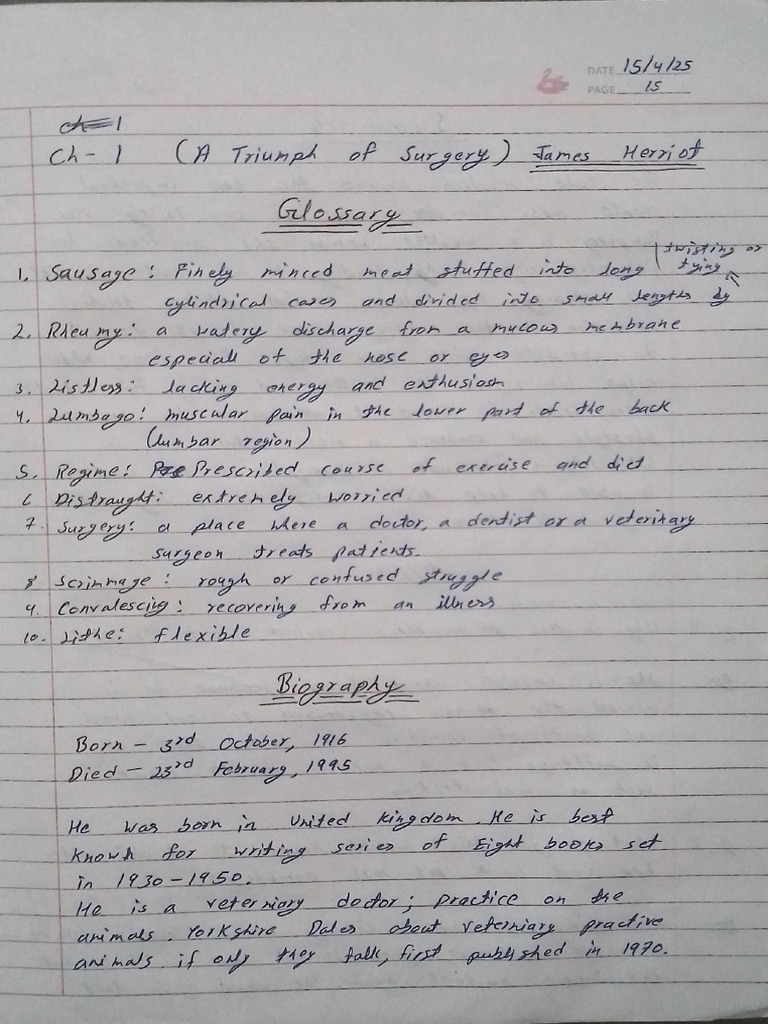 DATE 15/4/25
PAGE 15
Ch-1
Ch-1 (A Triumph of Surgery) James Herriot
Glossary
1. Sausage : Finely minced meat stuffed into long | twisting or tying
cylindrical cases and divided into small lengths by
2. Rheumy: a watery discharge from a mucous membrane
especiall of the nose or eyes
3. Listless: lacking energy and enthusiasm
4. Lumbago: muscular pain in the lower part of the back
(lumbar region)
5. Regime: Pre Prescribed course of exercise and diet
6 Distraught: extremely worried
7. Surgery: a place where a doctor, a dentist or a veterinary
surgeon treats patients.
8 Scrimmage : rough or confused struggle
9. Convalescing : recovering from an illness
10. Lithe: flexible
Biography
Born - 3rd October, 1916
Died - 23rd February, 1995
He was born in United Kingdom. He is best
known for writing series of Eight books set
in 1930-1950.
He is a veterniary doctor; practice on the
animals. Yorkshire Dales about veterniary practive
animals. if only they talk, first published in 1970.